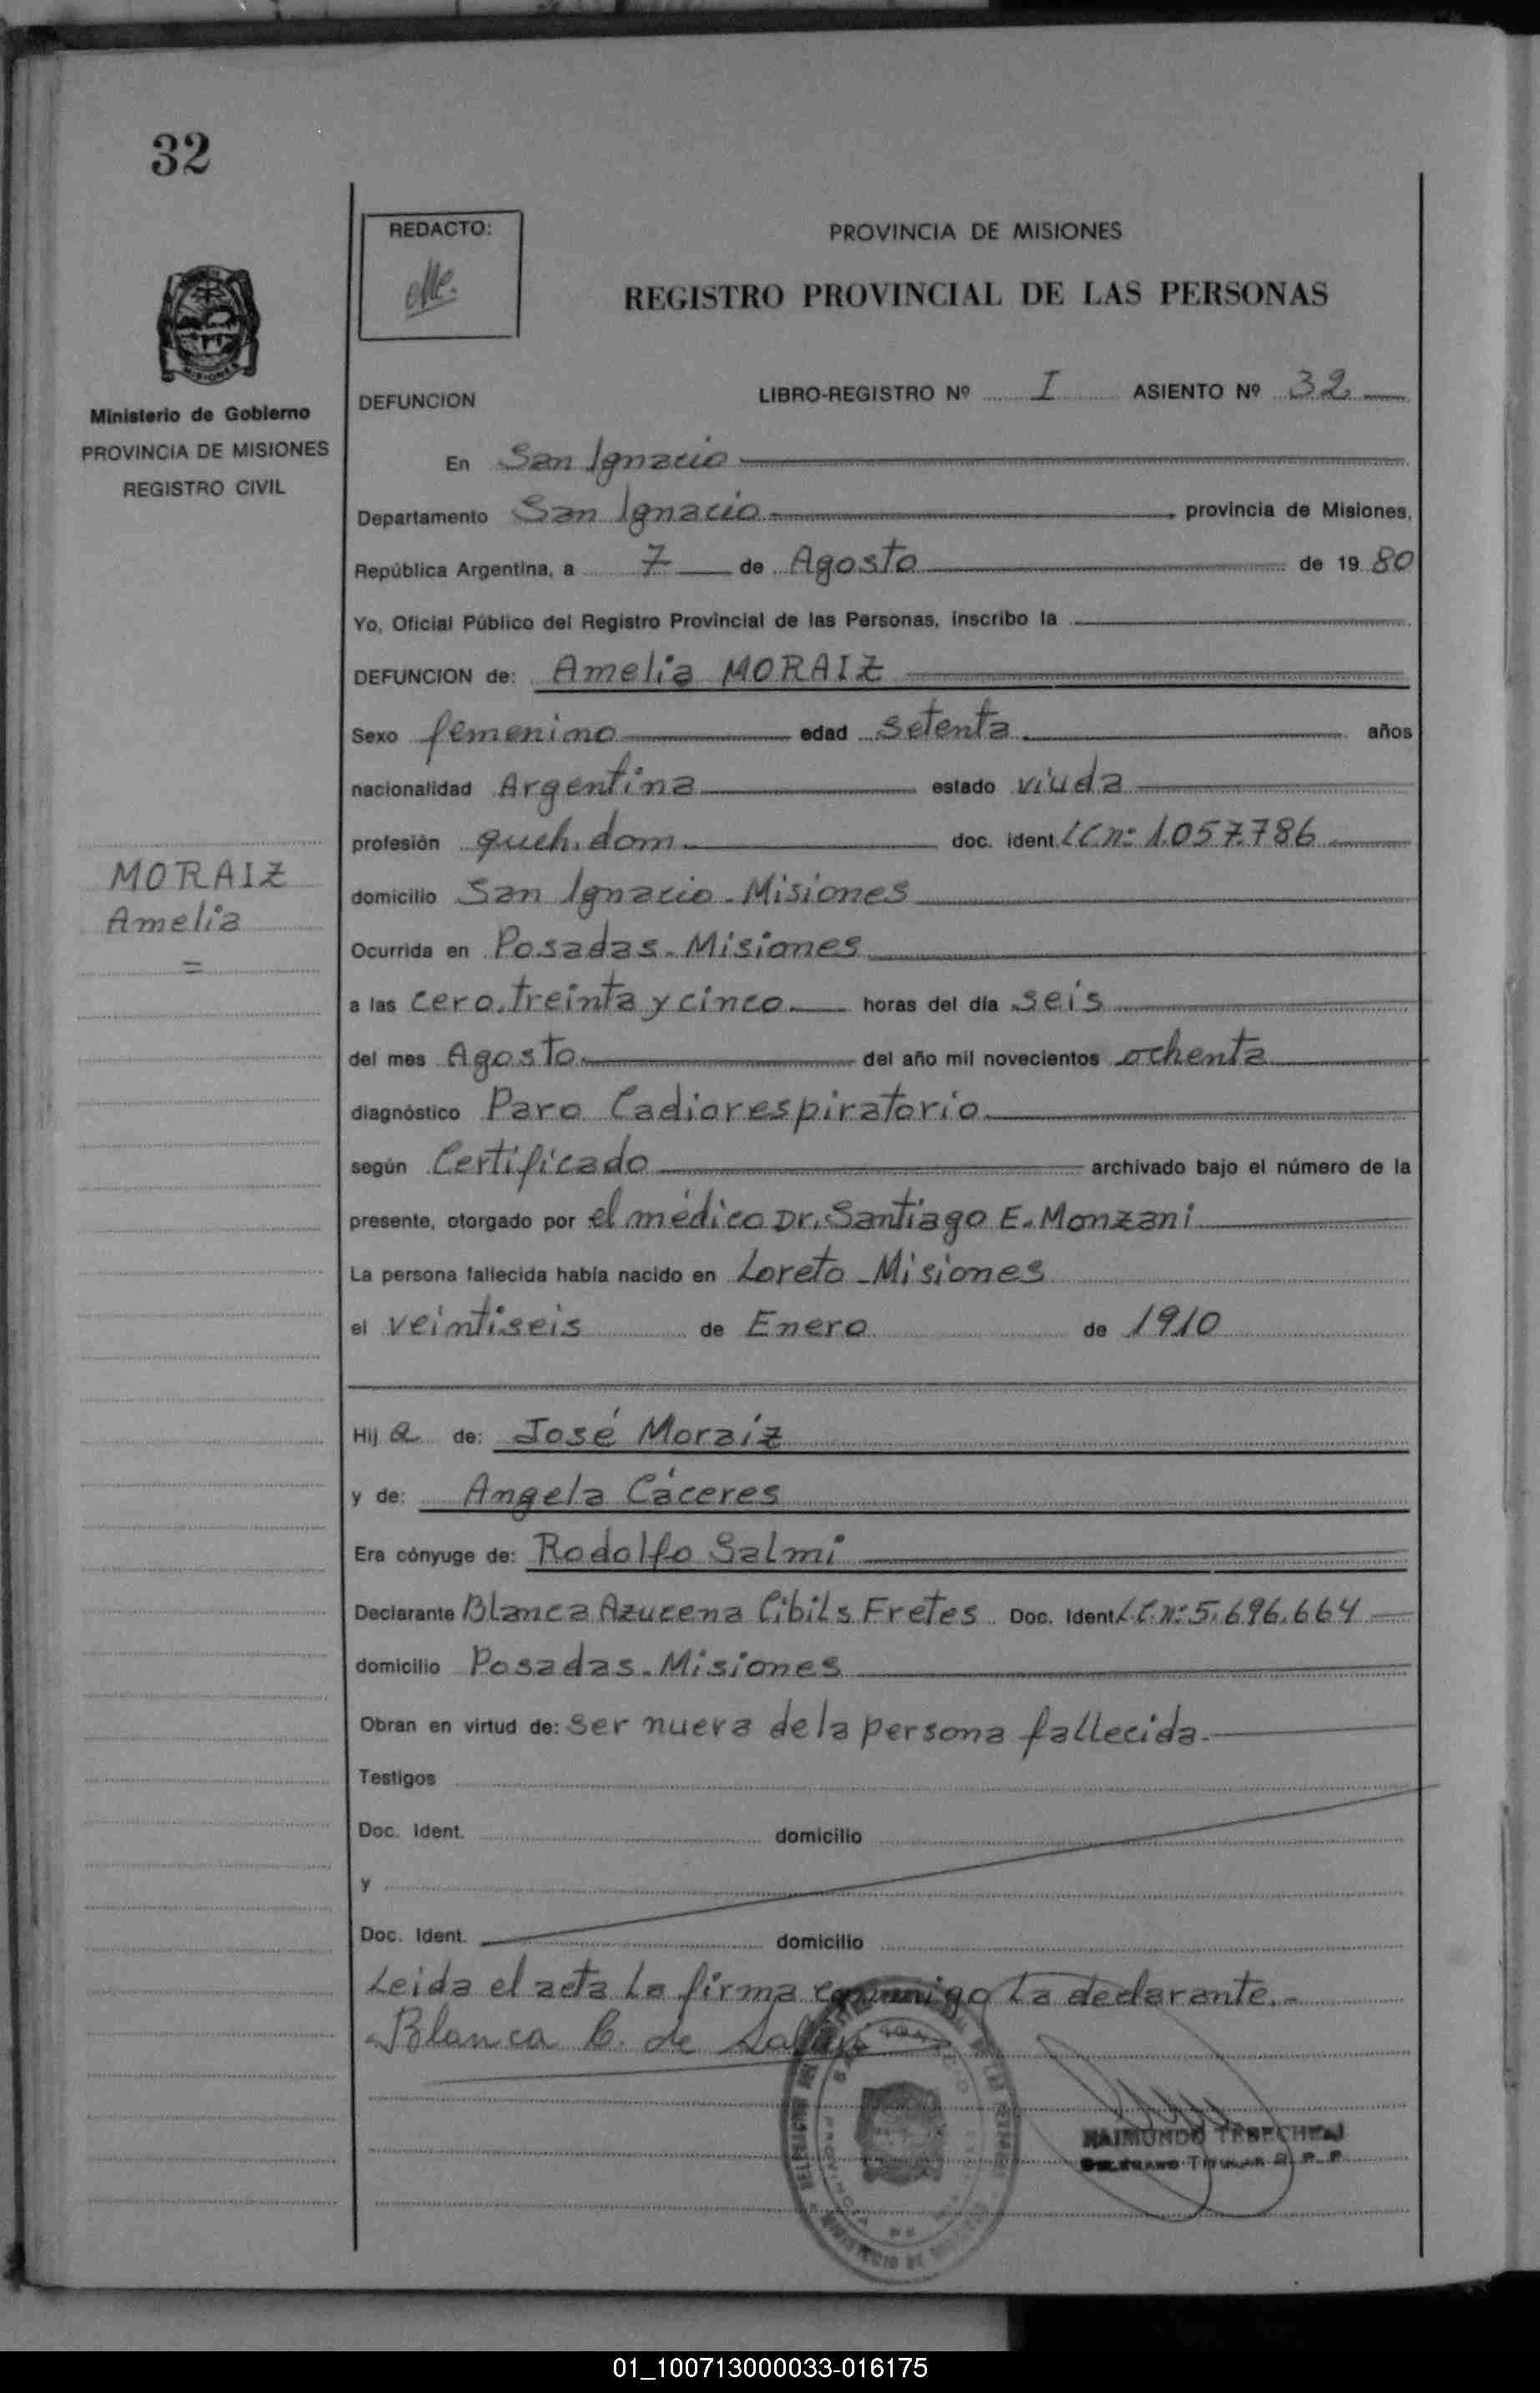 32
REDACTO:
PROVINCIA DE MISIONES
REGISTRO PROVINCIAL DE LAS PERSONAS
Ministerio de Gobierno
PROVINCIA DE MISIONES
REGISTRO CIVIL
DEFUNCION
LIBRO-REGISTRO Nº I ASIENTO Nº 32
En San Ignacio
Departamento San Ignacio provincia de Misiones,
República Argentina, a 7 de Agosto de 19 80
Yo, Oficial Público del Registro Provincial de las Personas, inscribo la
DEFUNCION de: Amelia MORAIZ
Sexo femenino edad setenta años
nacionalidad Argentina estado viuda
profesión queh. dom. doc. ident L C nº 1.057.786
MORAIZ
Amelia
=
domicilio San Ignacio - Misiones
Ocurrida en Posadas - Misiones
a las cero, treinta y cinco horas del día seis
del mes Agosto del año mil novecientos ochenta
diagnóstico Paro Cadiorespiratorio
según Certificado archivado bajo el número de la
presente, otorgado por el médico Dr. Santiago E. Monzani
La persona fallecida había nacido en Loreto - Misiones
el veintiseis de Enero de 1910
Hij a de: José Moraiz
y de: Angela Cáceres
Era cónyuge de: Rodolfo Salmi
Declarante Blanca Azucena Cibils Fretes Doc. Ident L C. nº 5.696.664
domicilio Posadas - Misiones
Obran en virtud de: ser nuera de la persona fallecida.
Testigos
Doc. Ident. domicilio
y
Doc. Ident. domicilio
Leida el acta la firma conmigo la declarante.-
Blanca C. de
RAIMUNDO
01_100713000033-016175